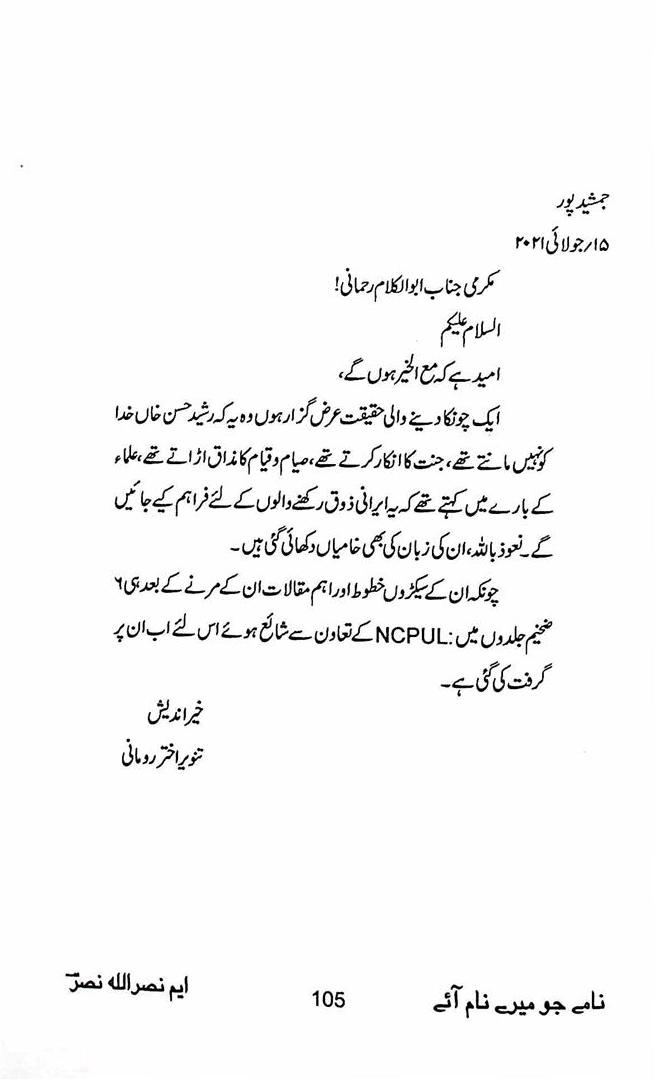 جمشید پور
۱۵؍جولائی ۲۰۲۱
مکرمی جناب ابوالکلام رحمانی!
السلام علیکم
امید ہے کہ مع الخیر ہوں گے،
ایک چونکا دینے والی حقیقت عرض گزار ہوں وہ یہ کہ رشید حسن خاں خدا
کو نہیں مانتے تھے، جنت کا انکار کرتے تھے، صیام و قیام کا مذاق اڑاتے تھے، علماء
کے بارے میں کہتے تھے کہ یہ ایرانی ذوق رکھنے والوں کے لئے فراہم کیے جائیں
گے۔ نعوذ باللہ، ان کی زبان کی بھی خامیاں دکھائی گئی ہیں۔
چونکہ ان کے سیکڑوں خطوط اور اہم مقالات ان کے مرنے کے بعد ہی ۶
ضخیم جلدوں میں: NCPUL کے تعاون سے شائع ہوئے اس لئے اب ان پر
گرفت کی گئی ہے۔
خیر اندیش
تنویر اختر رومانی
نامے جو میرے نام آئے 105 ایم نصر اللہ نصرؔ